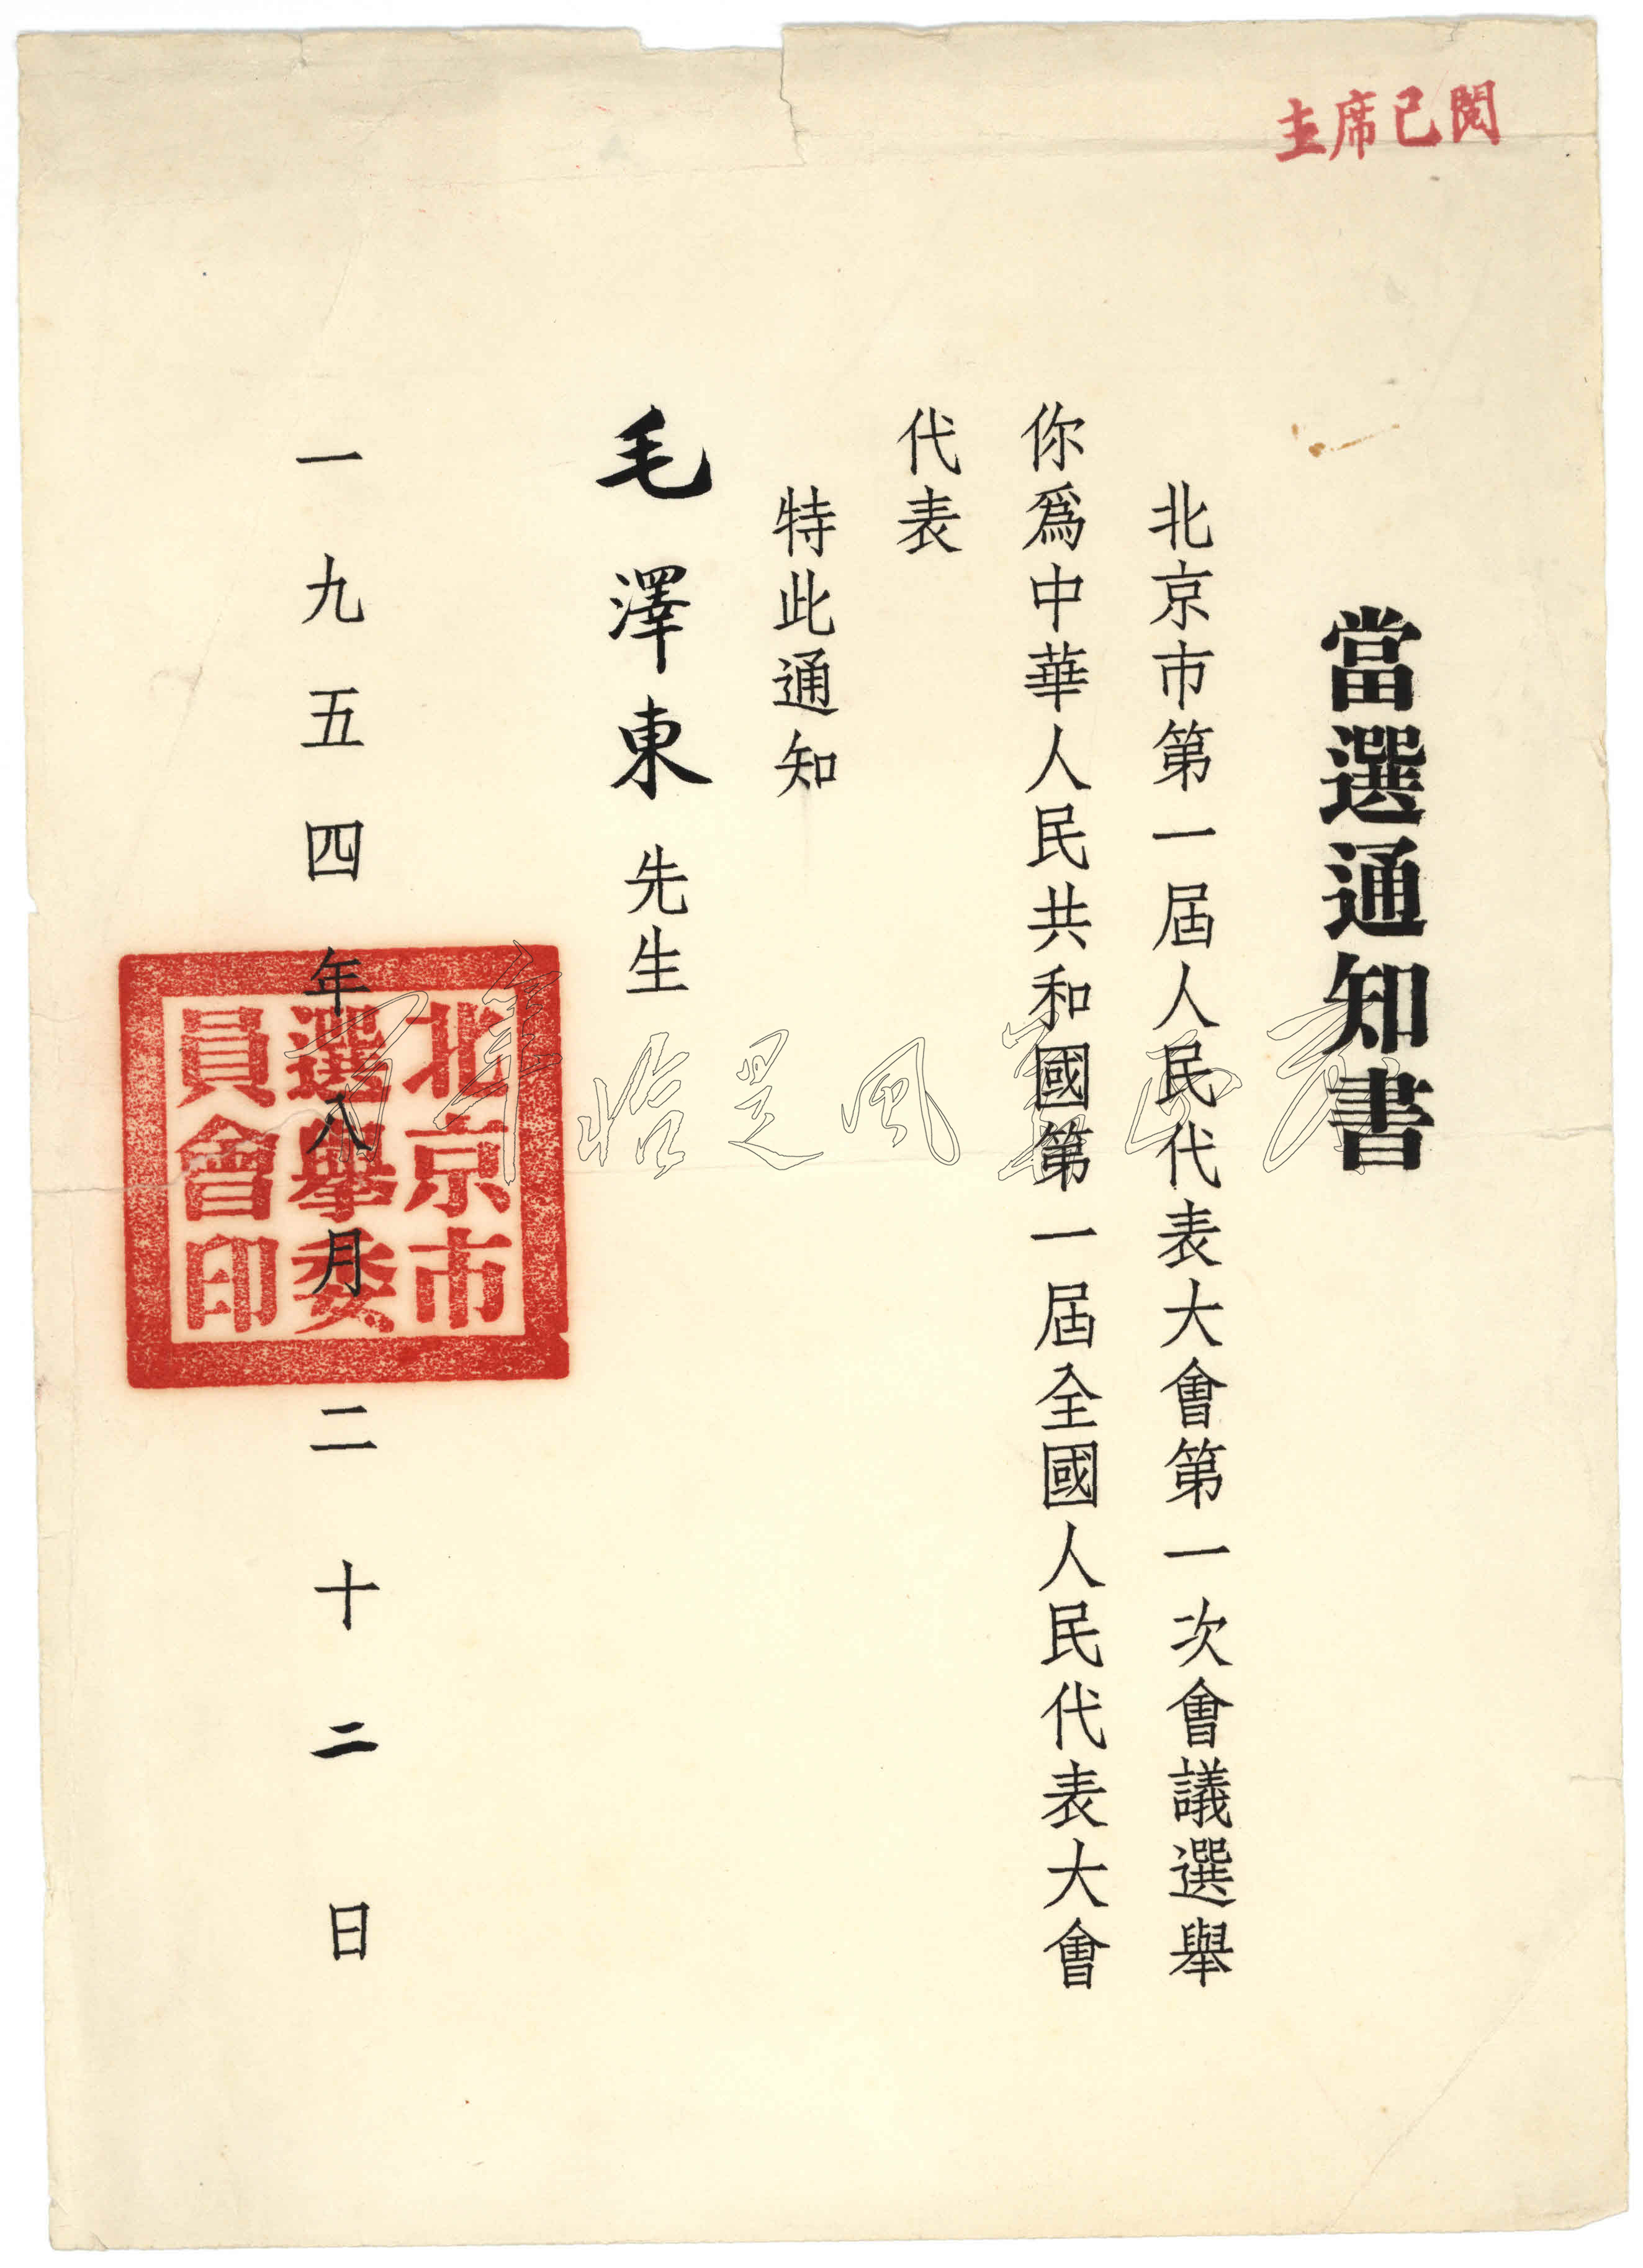 主席已閱
當選通知書
北京市第一屆人民代表大會第一次會議選舉
你爲中華人民共和國第一屆全國人民代表大會
代表
特此通知
毛澤東先生
一九五四年八月二十二日
北京市
選舉委
員會印
百年恰是風華正茂